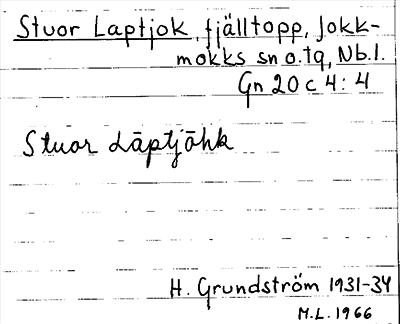 Stuor Laptjok, fjälltopp, Jokk-
mokks sn o. tg, Nb.l.
Gn 20 c 4:4
Stuor Lāptjåhk
H. Grundström 1931-34
M.L. 1966